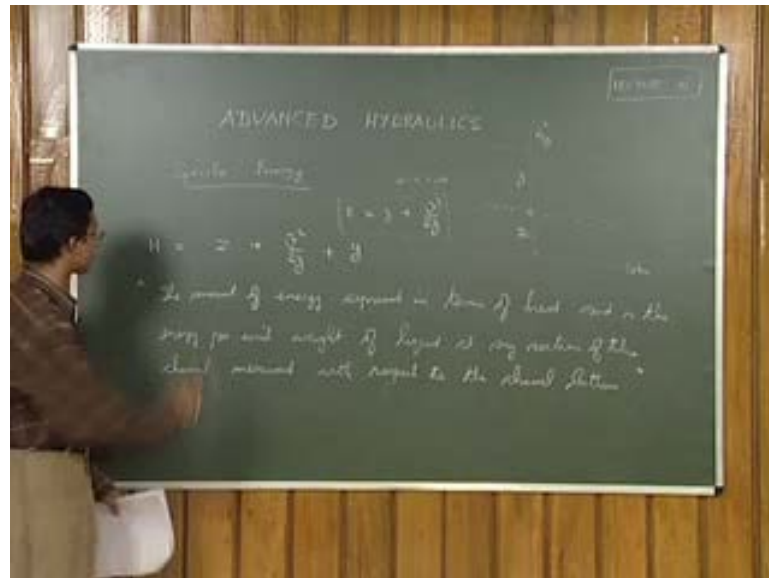 LECTURE
ADVANCED HYDRAULICS
Specific Energy
E = y + v²/2g
H = z + v²/2g + y
" The amount of energy expressed in terms of head and is the
energy per unit weight of liquid at any section of the
channel measured with respect to the channel bottom "
v²/2g
y
z